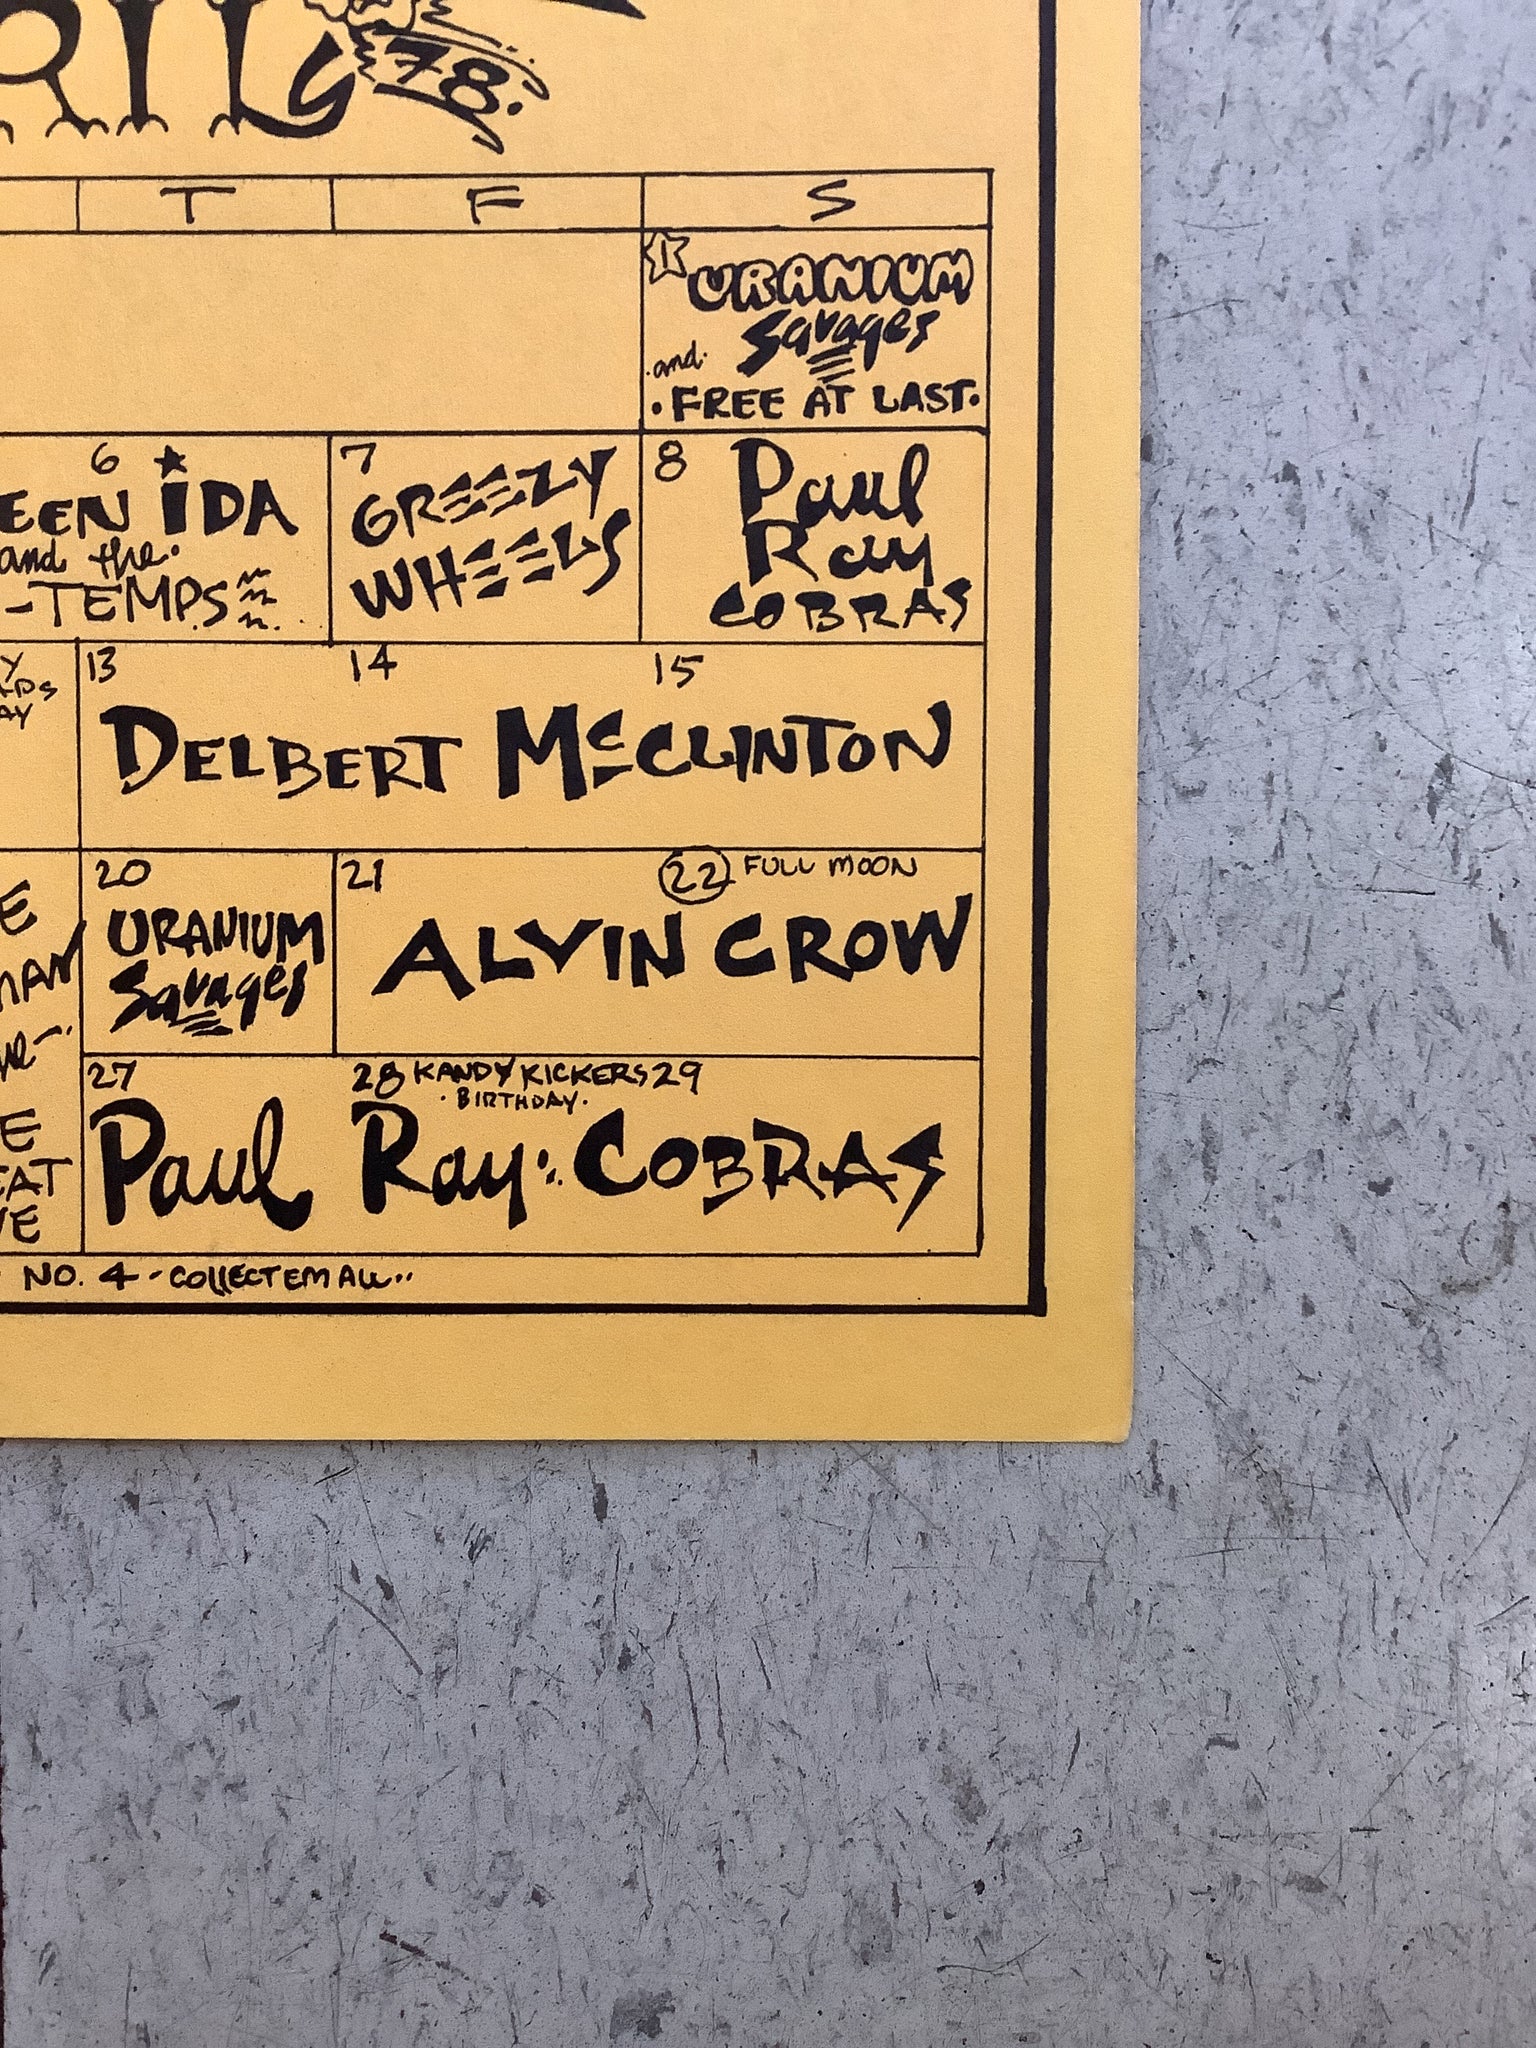 RIL 78.
T F S
1 URANIUM
Savages
and
• FREE AT LAST •
6 7 8
EEN IDA
and the
-TEMPS
GREEZY
WHEELS
Paul
Ray
COBRAS
Y
DS
AY
13 14 15
DELBERT McCLINTON
E
MAN
20
URANIUM
Savages
21 22 FULL MOON
ALVIN CROW
E
EAT
VE
27 28 KANDY KICKERS 29
• BIRTHDAY •
Paul Ray: COBRAS
NO. 4 - COLLECT EM ALL..